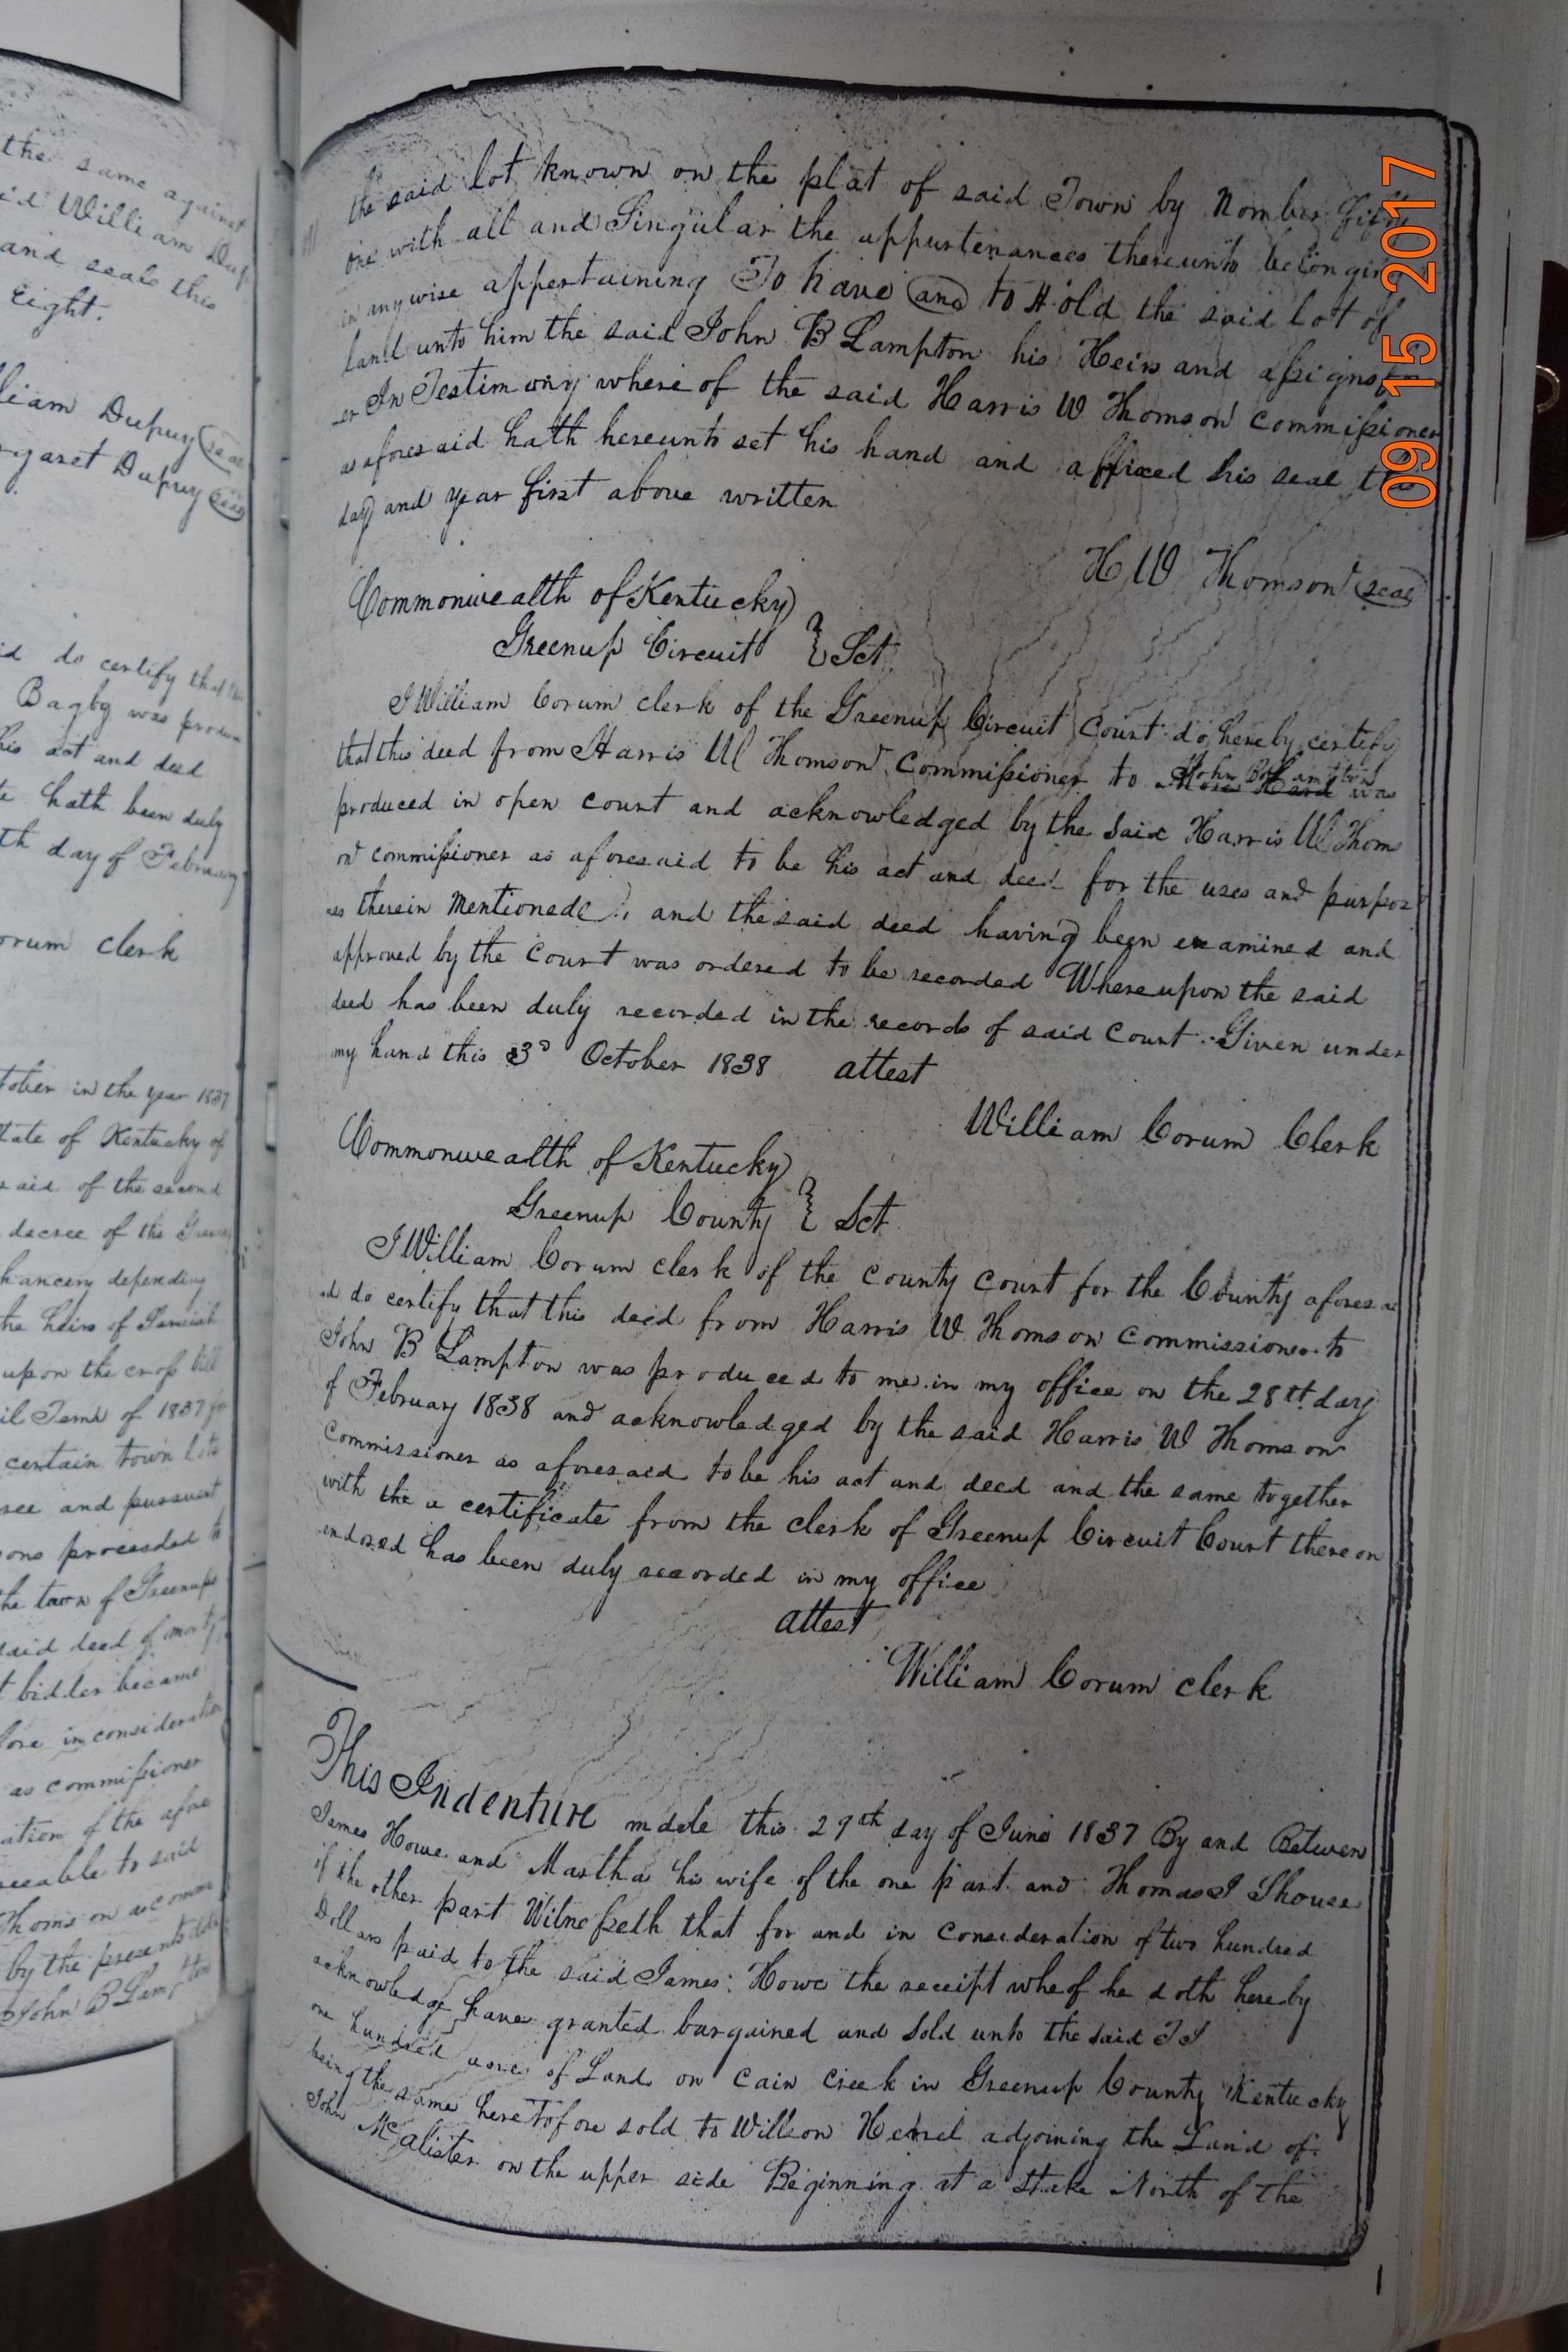 the same against
id William Dup
and seals this
Eight.
liam Dupuy seal
rgaret Dupuy seal
id do certify that
Bagby was produ
his act and deed
te hath been duly
th day of February
orum clerk
tober in the year 1837
tate of Kentucky of
said of the second
decree of the
hancery depending
the heirs of
upon the cross bill
il Term of 1837
certain town lots
ree and pursuant
ons proceeded to
the town of Greenup
said deed of mort
t bidder became
fore in consideration
as commissioner
ation of the afore
reeable to said
Thomson as comm
by the presents
John B Lampton
the said lot known on the plat of said Town by Nomber fifty
one with all and Singular the appurtenances thereunto belongin
in anywise appertaining To have and to Hold the said lot of
land unto him the said John B Lampton his Heirs and assigns
er In Testimony whereof the said Harris W Thomson commissioner
as aforesaid hath hereunto set his hand and affixed his seal the
day and year first above written
H W Thomson seal
Commonwealth of Kentucky
Greenup Circuit } Sct
I William Corum clerk of the Greenup Circuit Court do hereby certify
that this deed from Harris W Thomson Commissioner to John B Lampton was
produced in open court and acknowledged by the said Harris W Thom
on commissioner as aforesaid to be his act and deed for the uses and purpos
es therein Mentioned and the said deed having been examined and
approved by the Court was ordered to be recorded Whereupon the said
deed has been duly recorded in the records of said Court. Given under
my hand this 3d October 1838 attest
William Corum Clerk
Commonwealth of Kentucky
Greenup County } Sct
I William Corum clerk of the county court for the County aforesa
d do certify that this deed from Harris W Thomson commissioner to
John B Lampton was produced to me in my office on the 28th day
of February 1838 and acknowledged by the said Harris W Thomson
Commissioner as aforesaid to be his act and deed and the same together
with the a certificate from the clerk of Greenup Circuit Court thereon
endorsed has been duly recorded in my office
attest
William Corum clerk
This Indenture made this 29th day of June 1837 By and Between
James Howe and Martha his wife of the one part and Thomas J Shouse
of the other part Witnesseth that for and in consideration of two hundred
Dollars paid to the said James Howe the receipt wheof he doth hereby
acknowledge have granted bargained and sold unto the said T J
one hundred acres of Land on Cain Creek in Greenup County Kentucky
being the same heretofore sold to Willson adjoining the Land of
John McAlister on the upper side Beginning at a stake North of the
09 15 2017